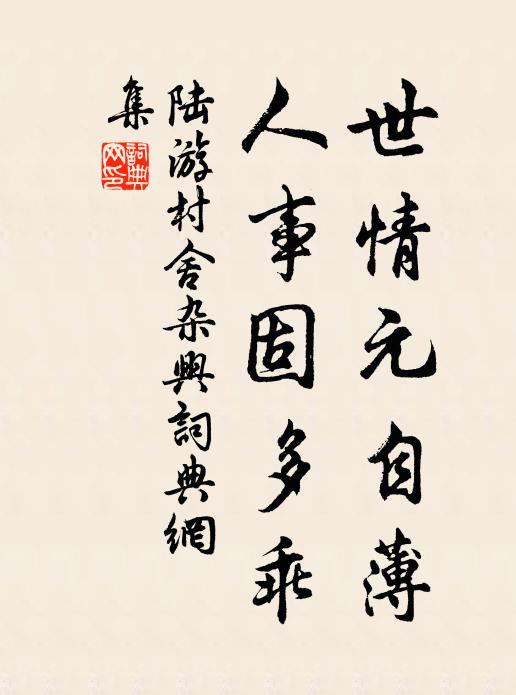 世情元自薄
人事固多乖
陆游村舍杂興詞典網
集
詞典
网印